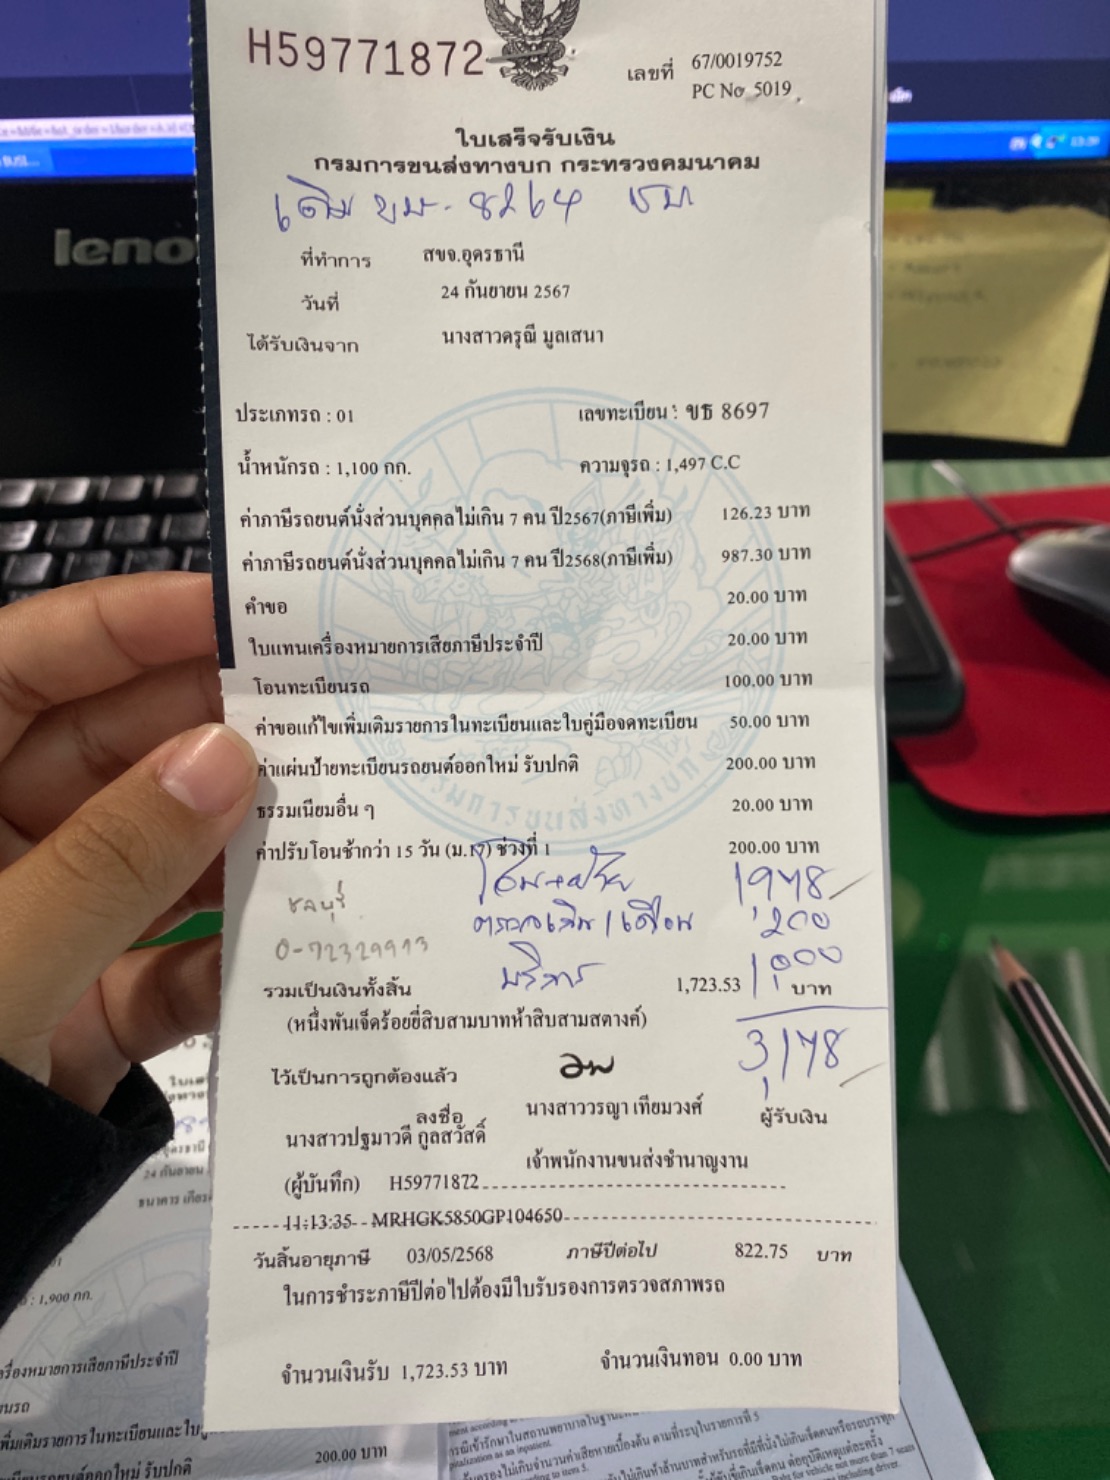 H59771872
เลขที่ 67/0019752
PC No 5019
ใบเสร็จรับเงิน
กรมการขนส่งทางบก กระทรวงคมนาคม
เดิม ขม-8264 ชบ
ที่ทำการ สขจ.อุดรธานี
วันที่ 24 กันยายน 2567
ได้รับเงินจาก นางสาวดรุณี มูลเสนา
ประเภทรถ : 01 เลขทะเบียน : ขธ 8697
น้ำหนักรถ : 1,100 กก. ความจุรถ : 1,497 C.C
ค่าภาษีรถยนต์นั่งส่วนบุคคลไม่เกิน 7 คน ปี2567(ภาษีเพิ่ม) 126.23 บาท
ค่าภาษีรถยนต์นั่งส่วนบุคคลไม่เกิน 7 คน ปี2568(ภาษีเพิ่ม) 987.30 บาท
คำขอ 20.00 บาท
ใบแทนเครื่องหมายการเสียภาษีประจำปี 20.00 บาท
โอนทะเบียนรถ 100.00 บาท
ค่าขอแก้ไขเพิ่มเติมรายการในทะเบียนและใบคู่มือจดทะเบียน 50.00 บาท
ค่าแผ่นป้ายทะเบียนรถยนต์ออกใหม่ รับปกติ 200.00 บาท
ธรรมเนียมอื่น ๆ 20.00 บาท
ค่าปรับโอนช้ากว่า 15 วัน (ม.17) ช่วงที่ 1 200.00 บาท
โอน+ย้าย 1,978
ชลบุรี
200
0-72329913
บริการ 1,000
รวมเป็นเงินทั้งสิ้น 1,723.53 บาท
(หนึ่งพันเจ็ดร้อยยี่สิบสามบาทห้าสิบสามสตางค์)
3,178
ไว้เป็นการถูกต้องแล้ว
ลงชื่อ นางสาววรญา เทียมวงศ์ ผู้รับเงิน
นางสาวปฐมาวดี กูลสวัสดิ์
เจ้าพนักงานขนส่งชำนาญงาน
(ผู้บันทึก) H59771872
11:13:35 MRHGK5850GP104650
วันสิ้นอายุภาษี 03/05/2568 ภาษีปีต่อไป 822.75 บาท
ในการชำระภาษีปีต่อไปต้องมีใบรับรองการตรวจสภาพรถ
จำนวนเงินรับ 1,723.53 บาท จำนวนเงินทอน 0.00 บาท
lenovo
24 กันยายน
: 1,900 กก.
200.00 บาท